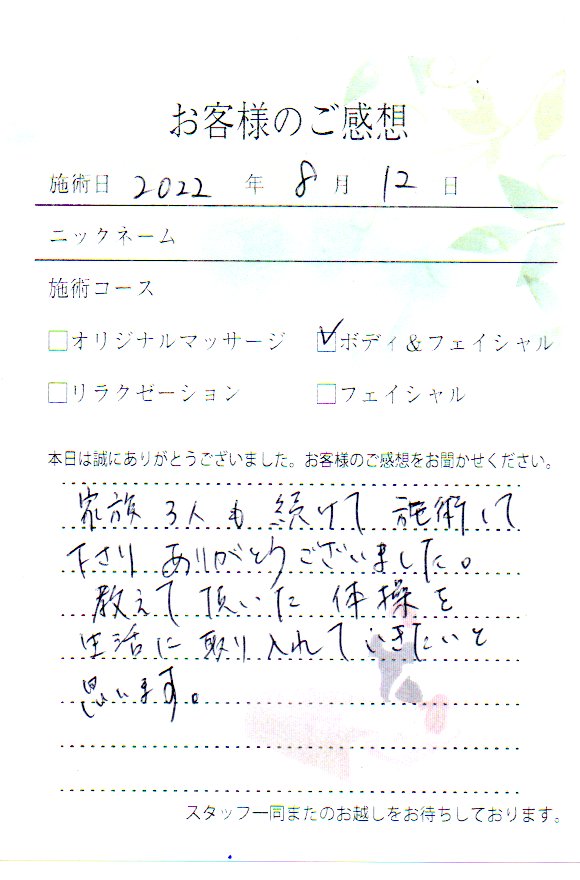 お客様のご感想
施術日 2022 年 8 月 12 日
ニックネーム
施術コース
□オリジナルマッサージ ☑ボディ&フェイシャル
□リラクゼーション □フェイシャル
本日は誠にありがとうございました。お客様のご感想をお聞かせください。
家族3人も続けて施術して
下さりありがとうございました。
教えて頂いた体操を
生活に取り入れていきたいと
思います。
スタッフ一同またのお越しをお待ちしております。